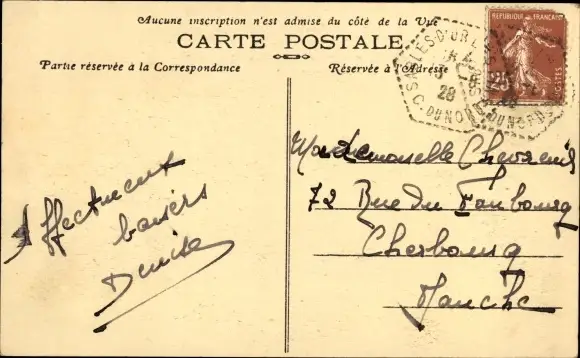 Aucune inscription n'est admise du côté de la Vue
CARTE POSTALE
Partie réservée à la Correspondance
Réservée à l'Adresse
SABLES-D'OR
28
C. DU NORD
REPUBLIQUE FRANÇAISE
POSTES
Affectment
baisers
Denise
Mademoiselle Chevreuil
72 Rue du Faubourg
Cherbourg
Manche